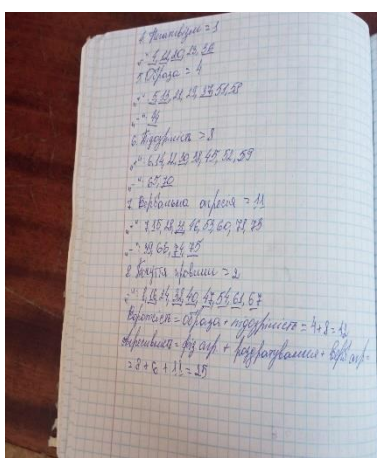 4. Негативізм = 1
„+“: 4, 12, 20, 23, 36
5. Образа = 4
„+“: 5, 13, 21, 29, 37, 51, 58
„-“: 44
6. Підозрілість = 8
„+“: 6, 14, 22, 30, 38, 45, 52, 59
„-“: 65, 70
7. Вербальна агресія = 11
„+“: 7, 15, 28, 31, 46, 53, 60, 71, 73
„-“: 39, 66, 74, 75
8. Почуття провини = 2
„+“: 8, 16, 24, 32, 40, 47, 54, 61, 67
Ворожість = Образа + підозрілість = 4+8 = 12
Агресивність = фіз агр. + роздратування + верб агр =
= 8 + 6 + 11 = 25